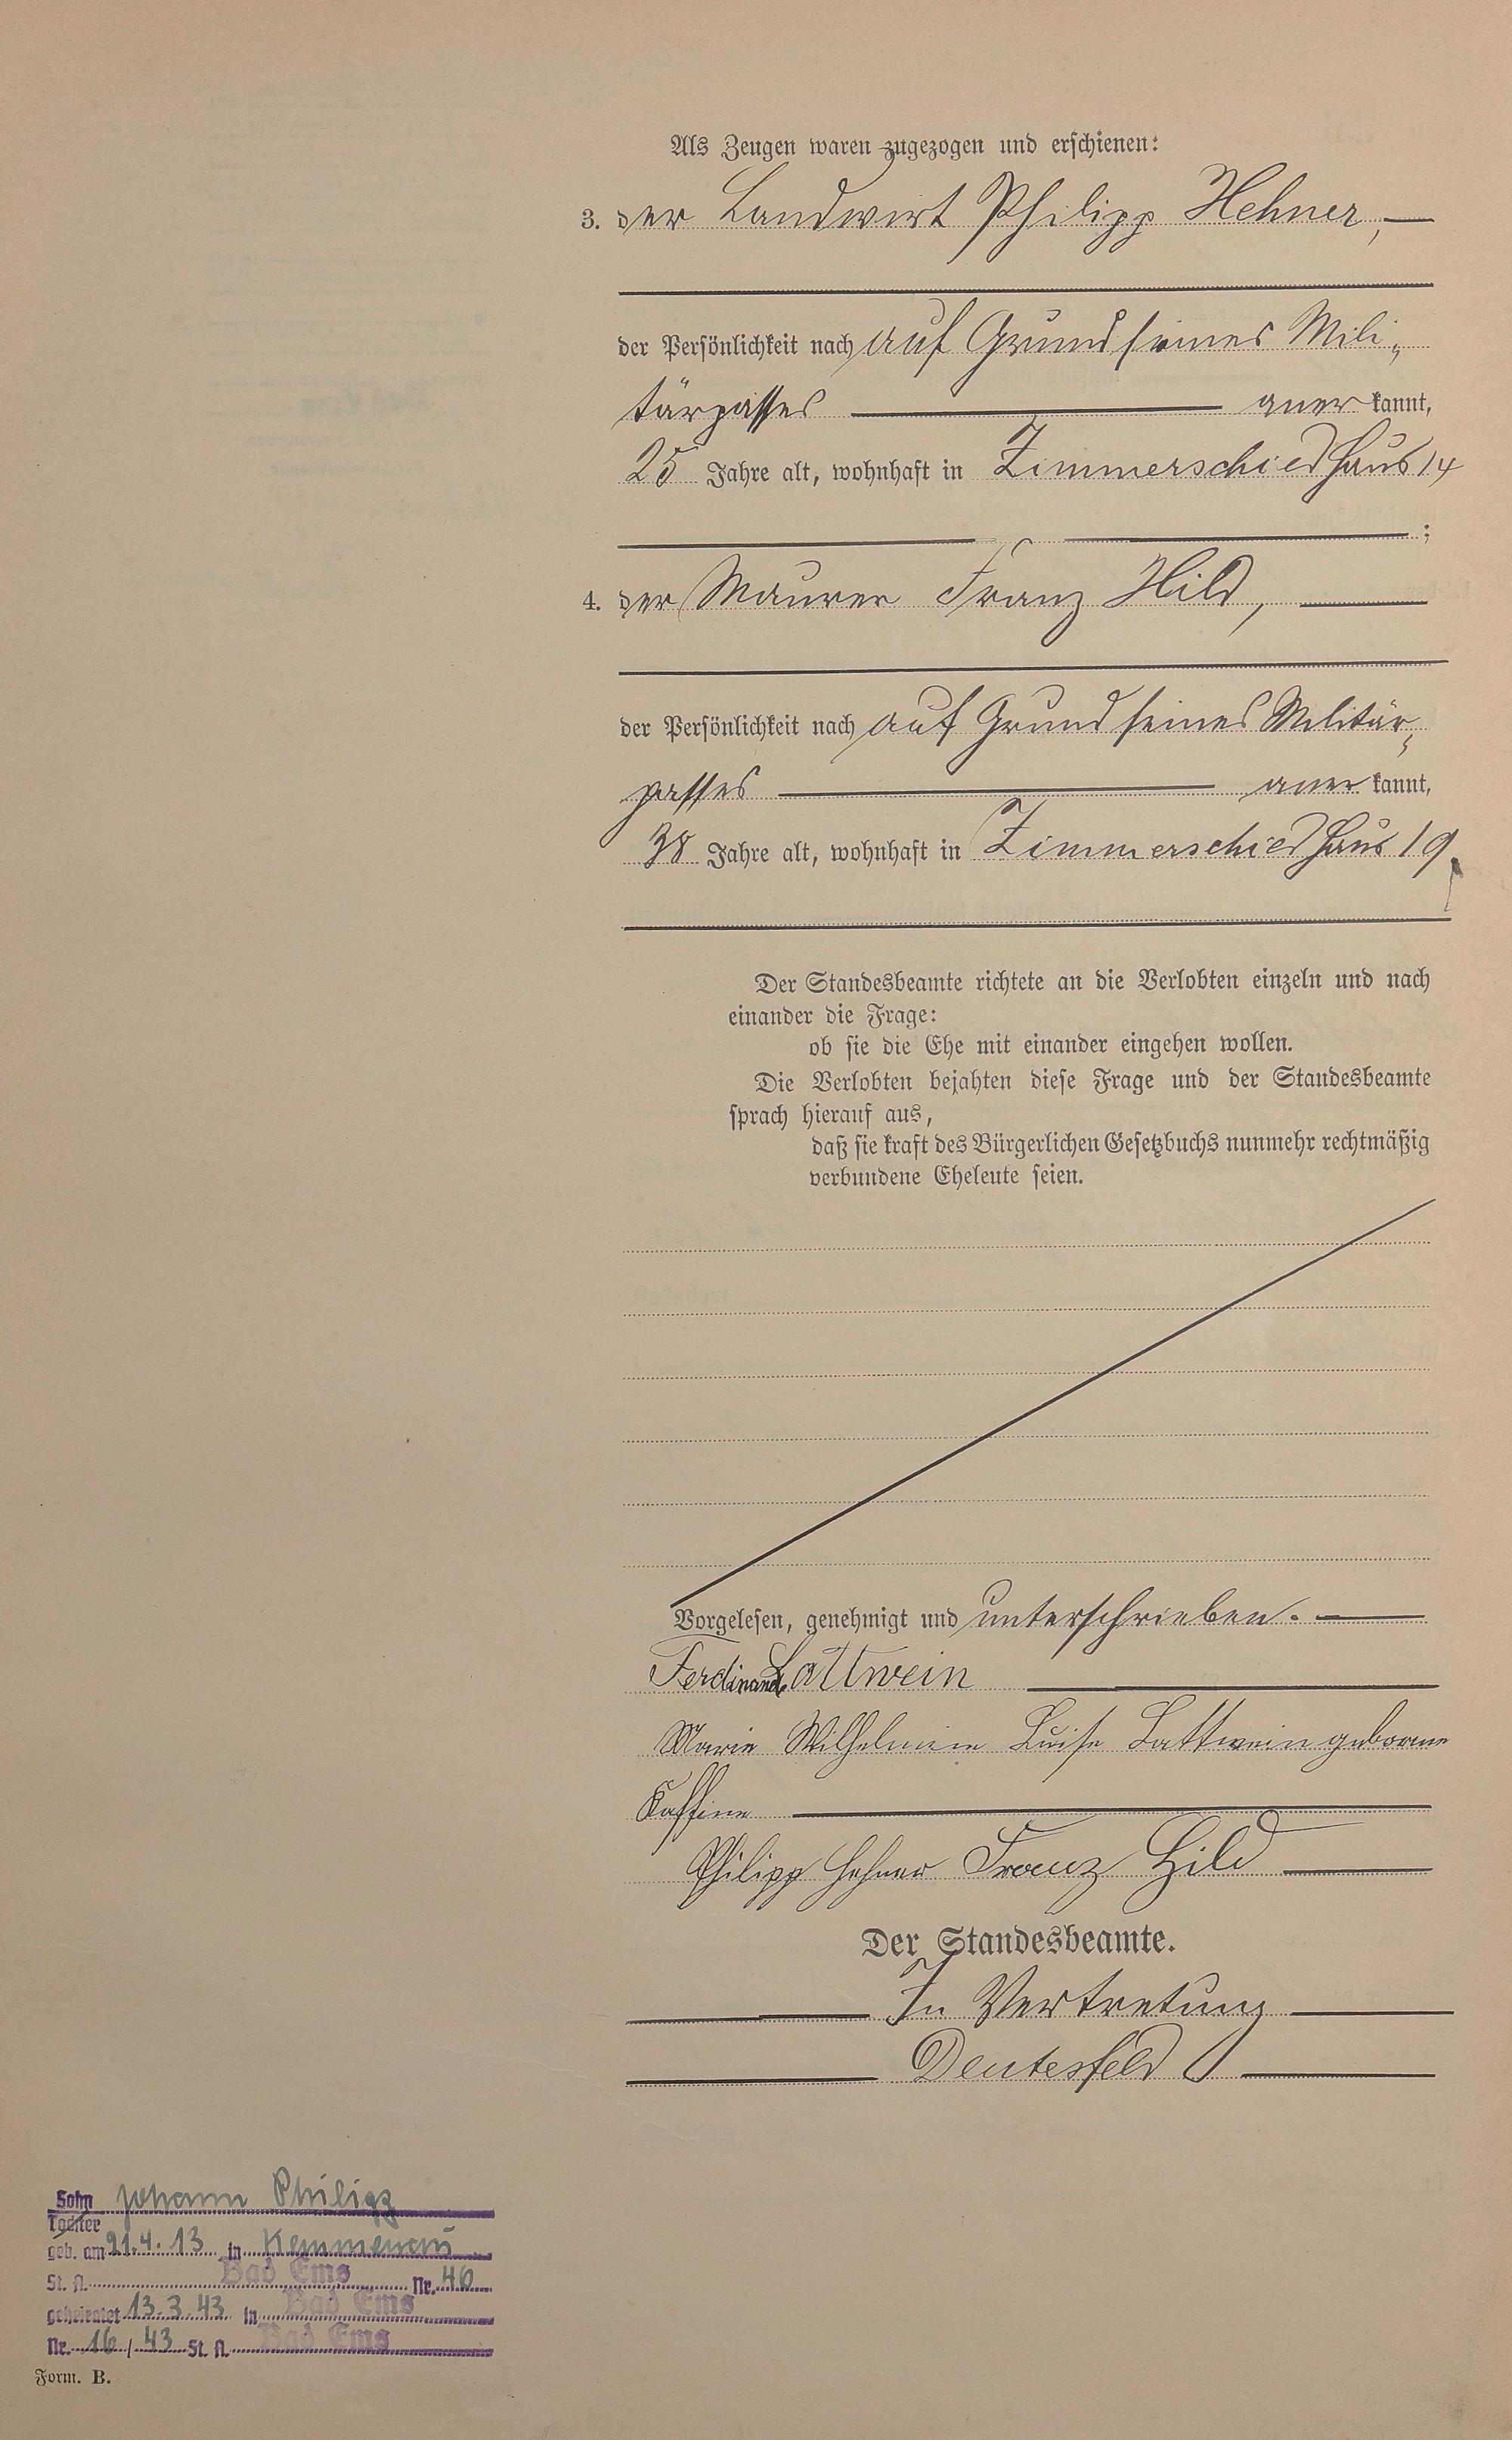 Als Zeugen waren zugezogen und erschienen:
3. der Landwirt Philipp Hehner,
der Persönlichkeit nach auf Grund seines Mili-
tärpasses anerkannt,
25 Jahre alt, wohnhaft in Zimmerschied Haus 14
;
4. der Maurer Franz Hild,
der Persönlichkeit nach auf Grund seines Militär-
passes anerkannt,
38 Jahre alt, wohnhaft in Zimmerschied Haus 19.
Der Standesbeamte richtete an die Verlobten einzeln und nach
einander die Frage:
ob sie die Ehe mit einander eingehen wollen.
Die Verlobten bejahten diese Frage und der Standesbeamte
sprach hierauf aus,
daß sie kraft des Bürgerlichen Gesetzbuchs nunmehr rechtmäßig
verbundene Eheleute seien.
Vorgelesen, genehmigt und unterschrieben.
Ferdinand Lattwein
Marie Wilhelmine Luise Lattwein geborene
Philipp Hehner Franz Hild
Der Standesbeamte.
In Vertretung
Deutesfeld
Sohn Johann Philipp
Tochter
geb. am 21.4.13 in Kemmenau
St. A. Bad Ems Nr. 46
geheiratet 13.3.43 in Bad Ems
Nr. 16/43 St. A. Bad Ems
Form. B.